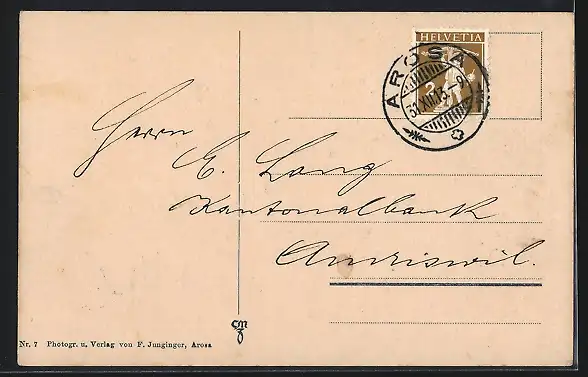 HELVETIA
2
AROSA
31.XII.13.-9
Herrn
E. Lang
Kantonalbank
Amriswil.
Nr. 7 Photogr. u. Verlag von F. Junginger, Arosa